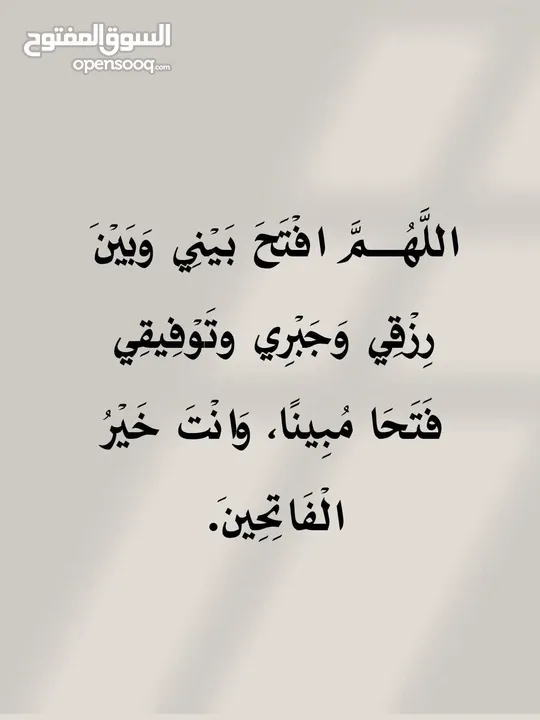 السوق المفتوح
opensooq.com
اللَّهُـــمَّ افْتَحَ بَيْنِي وَبَيْنَ
رِزْقِي وَجَبْرِي وتَوْفِيقِي
فَتَحَا مُبِينًا، وَانْتَ خَيْرُ
الْفَاتِحِينَ.